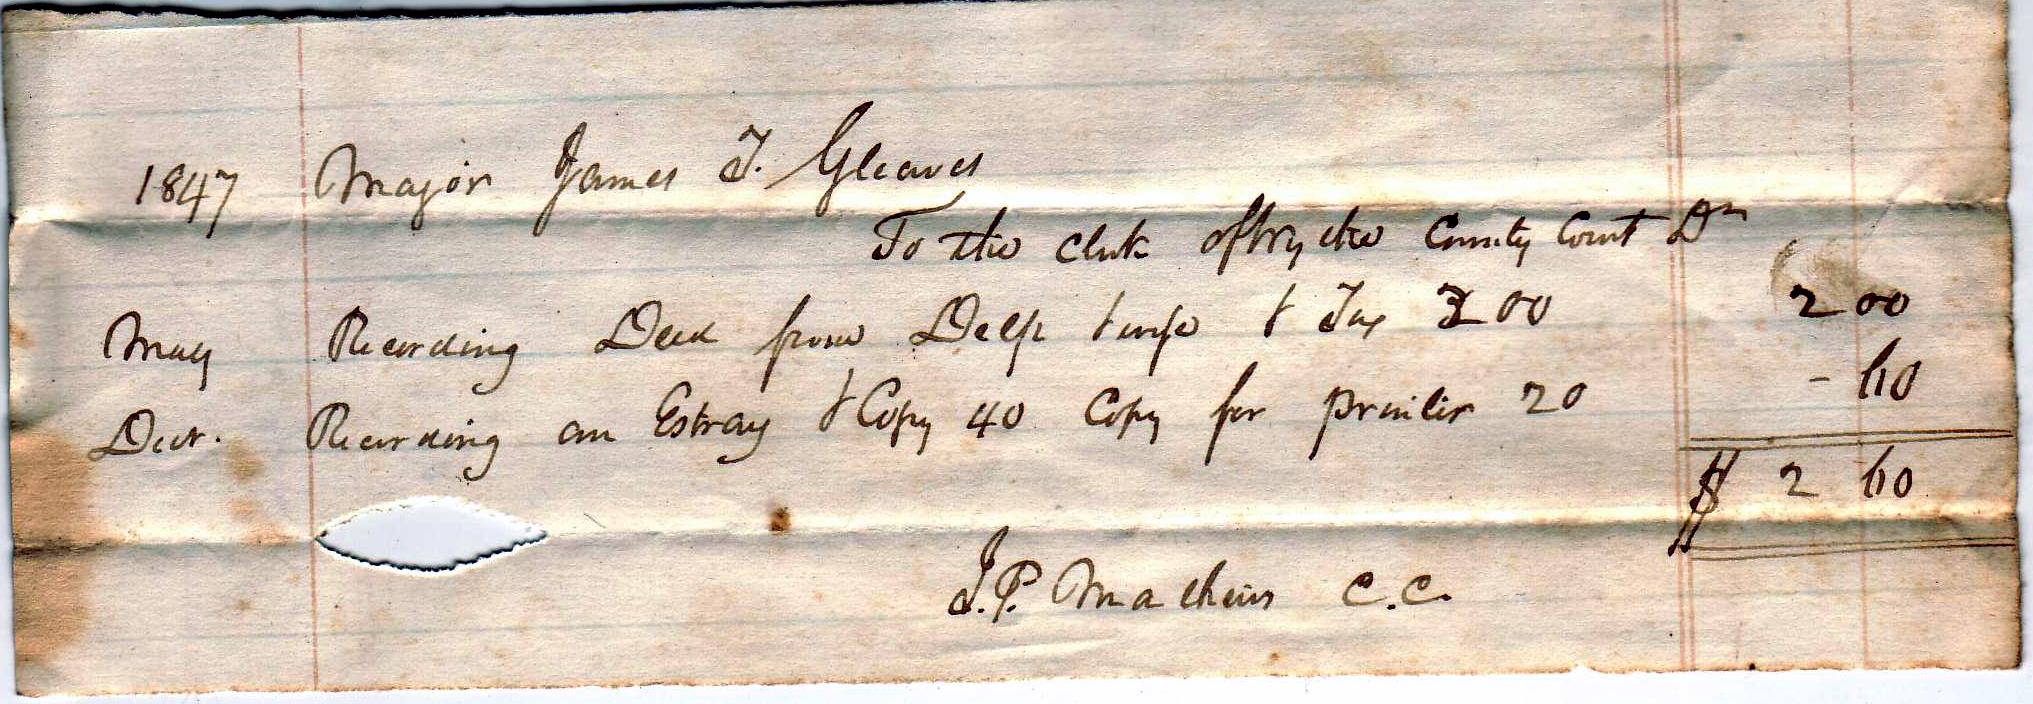 1847 Major James T. Gleaves
To the clerk of Wythe County Court Dr
May Recording Deed from Delp & wife & Tax 200 2 00
Decr. Recording an Estray & Copy 40 Copy for printer 20 - 60
$ 2 60
J.P. Mathews C.C.